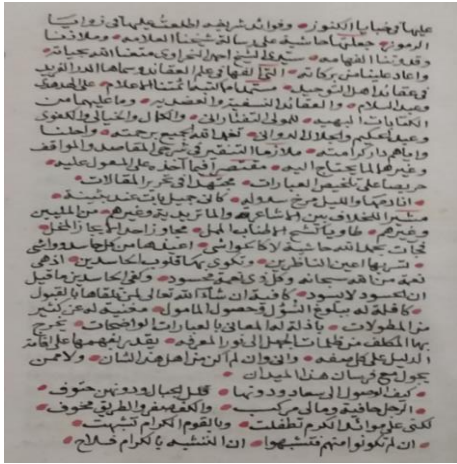 عليها فى خبايا الكنوز وفوائد شريفة اطلعت عليها فى زوايا
الرموز جعلتها حاشية على رسالة شيخنا العلامة وملاذنا
وقدوتنا الفهامه سيدى الشيخ احمد النحراوى متعنا الله بحياته
واعاد علينا من بركاته التى الفها فى علم العقائد وسماها الدر الفريد
فى عقائد اهل التوحيد مستمدا من كتب ائمتنا الاعلام على الجوهرة
وعبد السلام والعقائد النسفية والعضديه وما عليها من
الكتابات البهيه للمولى التفتازانى والكمال والخيالى والكفوى
وعبد الحكيم والجلال الدوانى تغمد الله الجميع برحمته واحلنا
واياهم دار كرامته ملازما التنقير فى شرحى المقاصد والمواقف
وغيرهما لما يحتاج اليه مقتصرا فيما آخذه على المعول عليه
حريصا على تلخيص العبارات مجتهدا فى تحرير المقالات
انا دمها والليل مرخ سدوله كانى جميل بات عند بثينة
مشيرا للخلاف بين الاشاعرة والماتريدية وغيرهم من المليين
وغيرهم طاويا كشح الاطناب الممل مجاوزا حد الايجاز المخل
فجاءت بحمد الله حاشية لا كالحواشى اعيذها من كل حاسد وواشى
تسر بها اعين الناظرين وتكوى بها قلوب الحاسدين اذ هى
نعمة من الله سبحانه وكل ذى نعمة محسود وكفى الحاسد ما قيل
ان الحسود لا يسود كافية ان شاء الله تعالى لمن تلقاها بالقبول
كافلة له ببلوغ السؤل وحصول المامول مغنية له عن كثير
من المطولات باذلة له المعانى بالعبارات الواضحات يخرج
بها المكلف من ظلمات الجهل الى نور المعرفه يقدر بفهمها على اقامة
الدليل على كل صفه وانى وان لم اكن من اهل هذا الشان ولا ممن
يجول مع فرسان هذا الميدان
كيف الوصول الى سعاد ودونها قلل الجبال ودونهن حتوف
الرجل حافية ومالى مركب والكف صفر والطريق مخوف
لكنى على موائد الكرم تطفلت وبالقوم الكرام تشبهت
ان لم تكونوا منهم فتشبهوا ان التشبه بالكرام فلاح